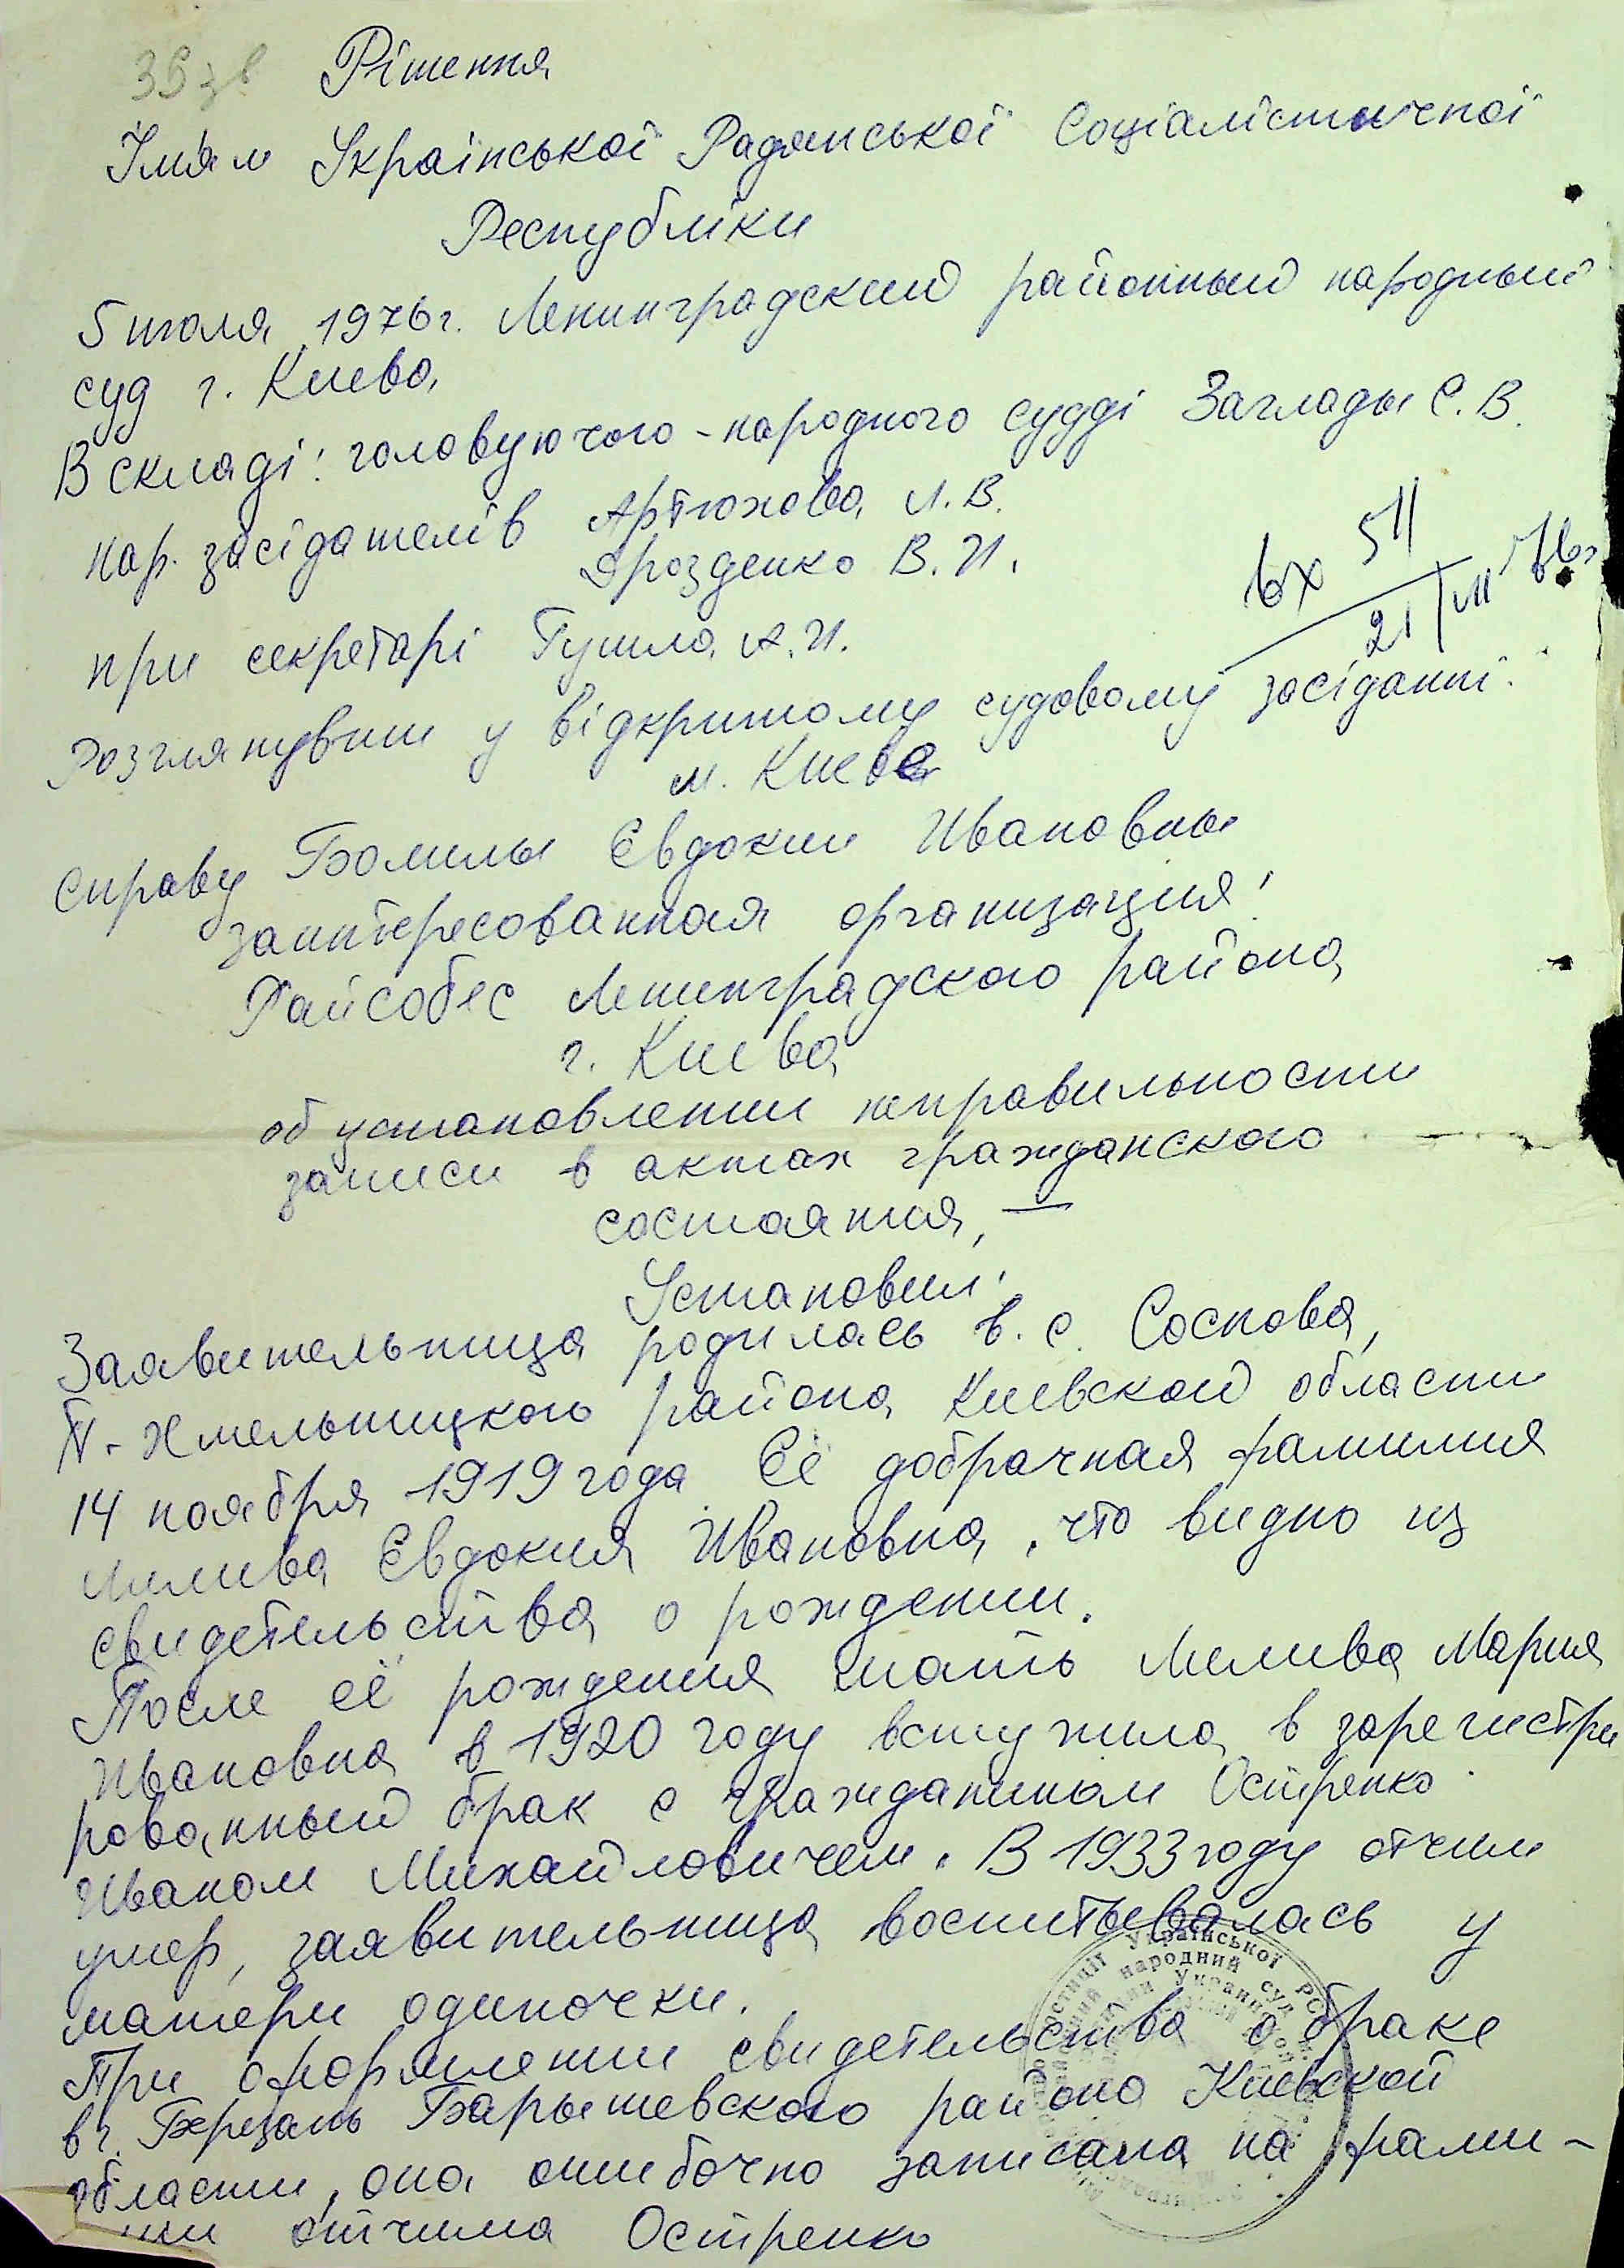 Рішення
Ім'ям Української Радянської Соціалістичної
Республіки
5 июля 1976г. Ленинградский районный народный
суд г. Киева,
В складі: головуючого - народного судді Заглады С.В.
нар. засідателів Артюхова Л.В.
Дрозденко В.И.
вх 511
21/VII
при секретарі Гушла А.И.
Розглянувши у відкритому судовому засіданні
м. Киева
справу Бомилы Евдокии Ивановны
заинтересованная организация:
Райсобес Ленинградского района
г. Киева
об установлении неправильности
записи в актах гражданского
состояния, —
Установил:
Заявительница родилась в. с. Соснова,
П.-Хмельницкого района Киевской области
14 ноября 1919 года. Её добрачная фамилия
Мелива Евдокия Ивановна, что видно из
свидетельства о рождении.
После её рождения мать Мелива Мария
Ивановна в 1920 году вступила в зарегистри
рованный брак с гражданином Остренко
Иваном Михайловичем. В 1933 году отчим
умер, заявительница воспитывалась у
матери одиночки.
При оформлении свидетельства о браке
в г. Березань Барышевского района Киевской
области, она ошибочно записана на фами-
отчима Остренко
Української РСР
народний суд